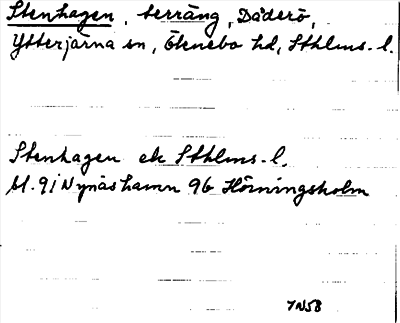 Stenhagen, terräng, Dåderö,
Ytterjärna sn, Öknebo hd, Sthlms-l.
Stenhagen ek Sthlms-l.
bl. 91 Nynäshamn 96 Hörningsholm
7N58